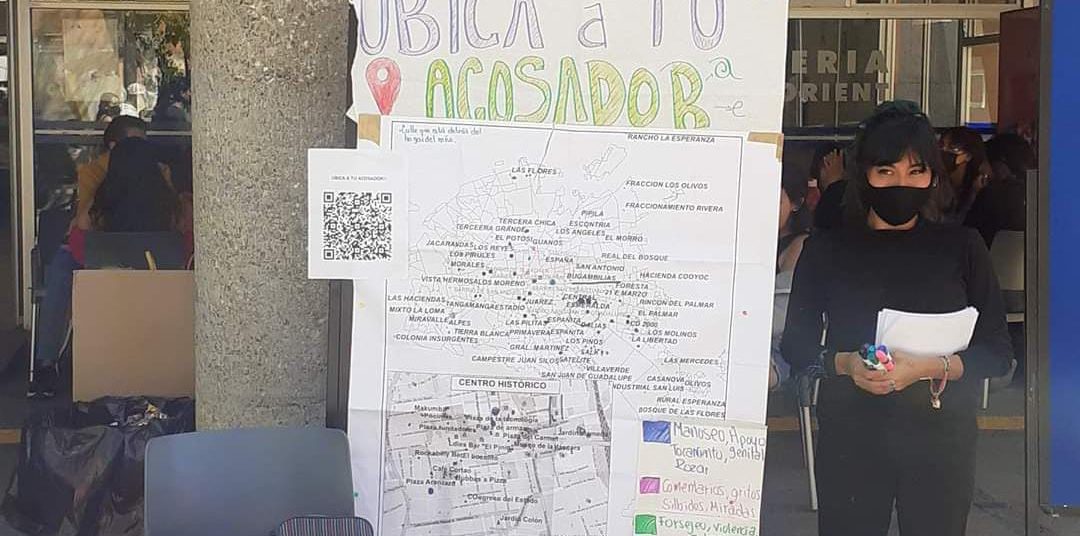 UBICA a TU
ACOSADOR.a
-e
Calle que está detrás del
hogar del niño.
RANCHO LA ESPERANZA
UBICA A TU ACOSADOR
LAS FLORES
FRACCION LOS OLIVOS
FRACCIONAMIENTO RIVERA
PIPILA
TERCERA CHICA
ESCONTRIA
TERCERA GRANDE
LOS ANGELES
EL POTOSI
GUANOS
EL MORRO
JACARANDAS
LOS REYES
LOS PIRULES
ESPAÑA
REAL DEL BOSQUE
MORALES
SAN ANTONIO
BUGAMBILIAS
HACIENDA CODYOC
VISTA HERMOSA
LOS MORENO
FORESTA
21 E MARZO
LAS HACIENDAS
JUAREZ
RINCON DEL PALMAR
MIXTO LA LOMA
TANGAMANGA
ESTADIO
EL PALMAR
MIRAVALLE
ALPES
LAS PILITAS
ESPAÑITA
DALIAS
CD 2000
TIERRA BLANCA
PRIMAVERA
ESPAÑITA
LOS MOLINOS
COLONIA INSURGENTES
LOS PINOS
LA LIBERTAD
GRAL. MARTINEZ
CAMPESTRE
JUAN SILOS
SATELITE
LAS MERCEDES
VILLAVERDE
SAN JUAN DE GUADALUPE
CASANOVA
OLIVOS
INDUSTRIAL SAN LUIS
RURAL ESPERANZA
BOSQUE DE LAS FLORES
CENTRO HISTÓRICO
Makumba
Plaza de armas
Plaza del Carmen
Plaza fundadores
Lidies Bar "El Pinos"
Museo de la Mascara
Rockabilly Bar
Café Cortao
Plaza Aranzazu
Bubbas x Pizza
COngreso del Estado
Jardín Colón
Manoseo, Apoyo
Toramiento, genital
Rozar
Comentarios, gritos
Silbidos, Miradas
Forsejeo, violencia
ERIA
ORIENT